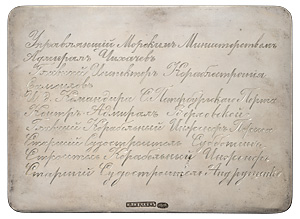 Управляющiй Морскимъ Министерствомъ
Адмиралъ Чихачевъ
Главный Инспекторъ Кораблестроенiя
И. д. Командира С.Петербургскаго Порта
Контръ Адмиралъ Верховской
Главный Корабельный Инженеръ Порта
Старшiй Судостроитель Субботинъ
Корабельный Инженеръ
Старшiй Судостроитель